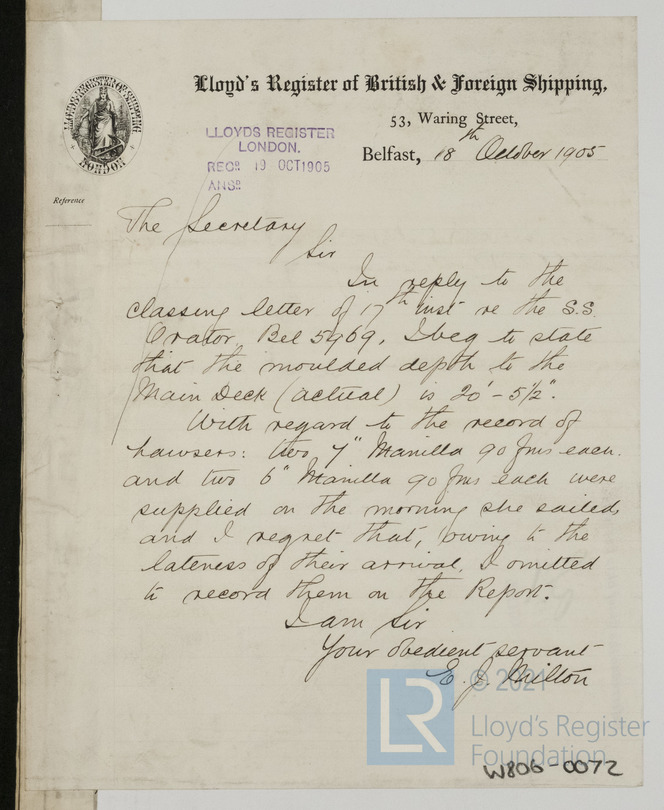 Lloyd's Register of British & Foreign Shipping,
53, Waring Street,
Belfast, 18th October 1905
LLOYD'S REGISTER OF SHIPPING
LONDON
LLOYDS REGISTER
LONDON.
RECD 19 OCT 1905
ANSD
Reference
The Secretary
Sir
In reply to the
classing letter of 17th inst re the S.S.
Orator, Bel 5969, I beg to state
that the moulded depth to the
Main Deck (actual) is 20' - 5½".
With regard to the record of
hawsers: two 7" Manilla 90 fms each.
and two 6" Manilla 90 fms each were
supplied on the morning she sailed,
and I regret that, owing to the
lateness of their arrival, I omitted
to record them on the Report.
I am Sir
Your obedient servant
E. J. Milton
© 2021
LR
Lloyd's Register
Foundation
W806-0072